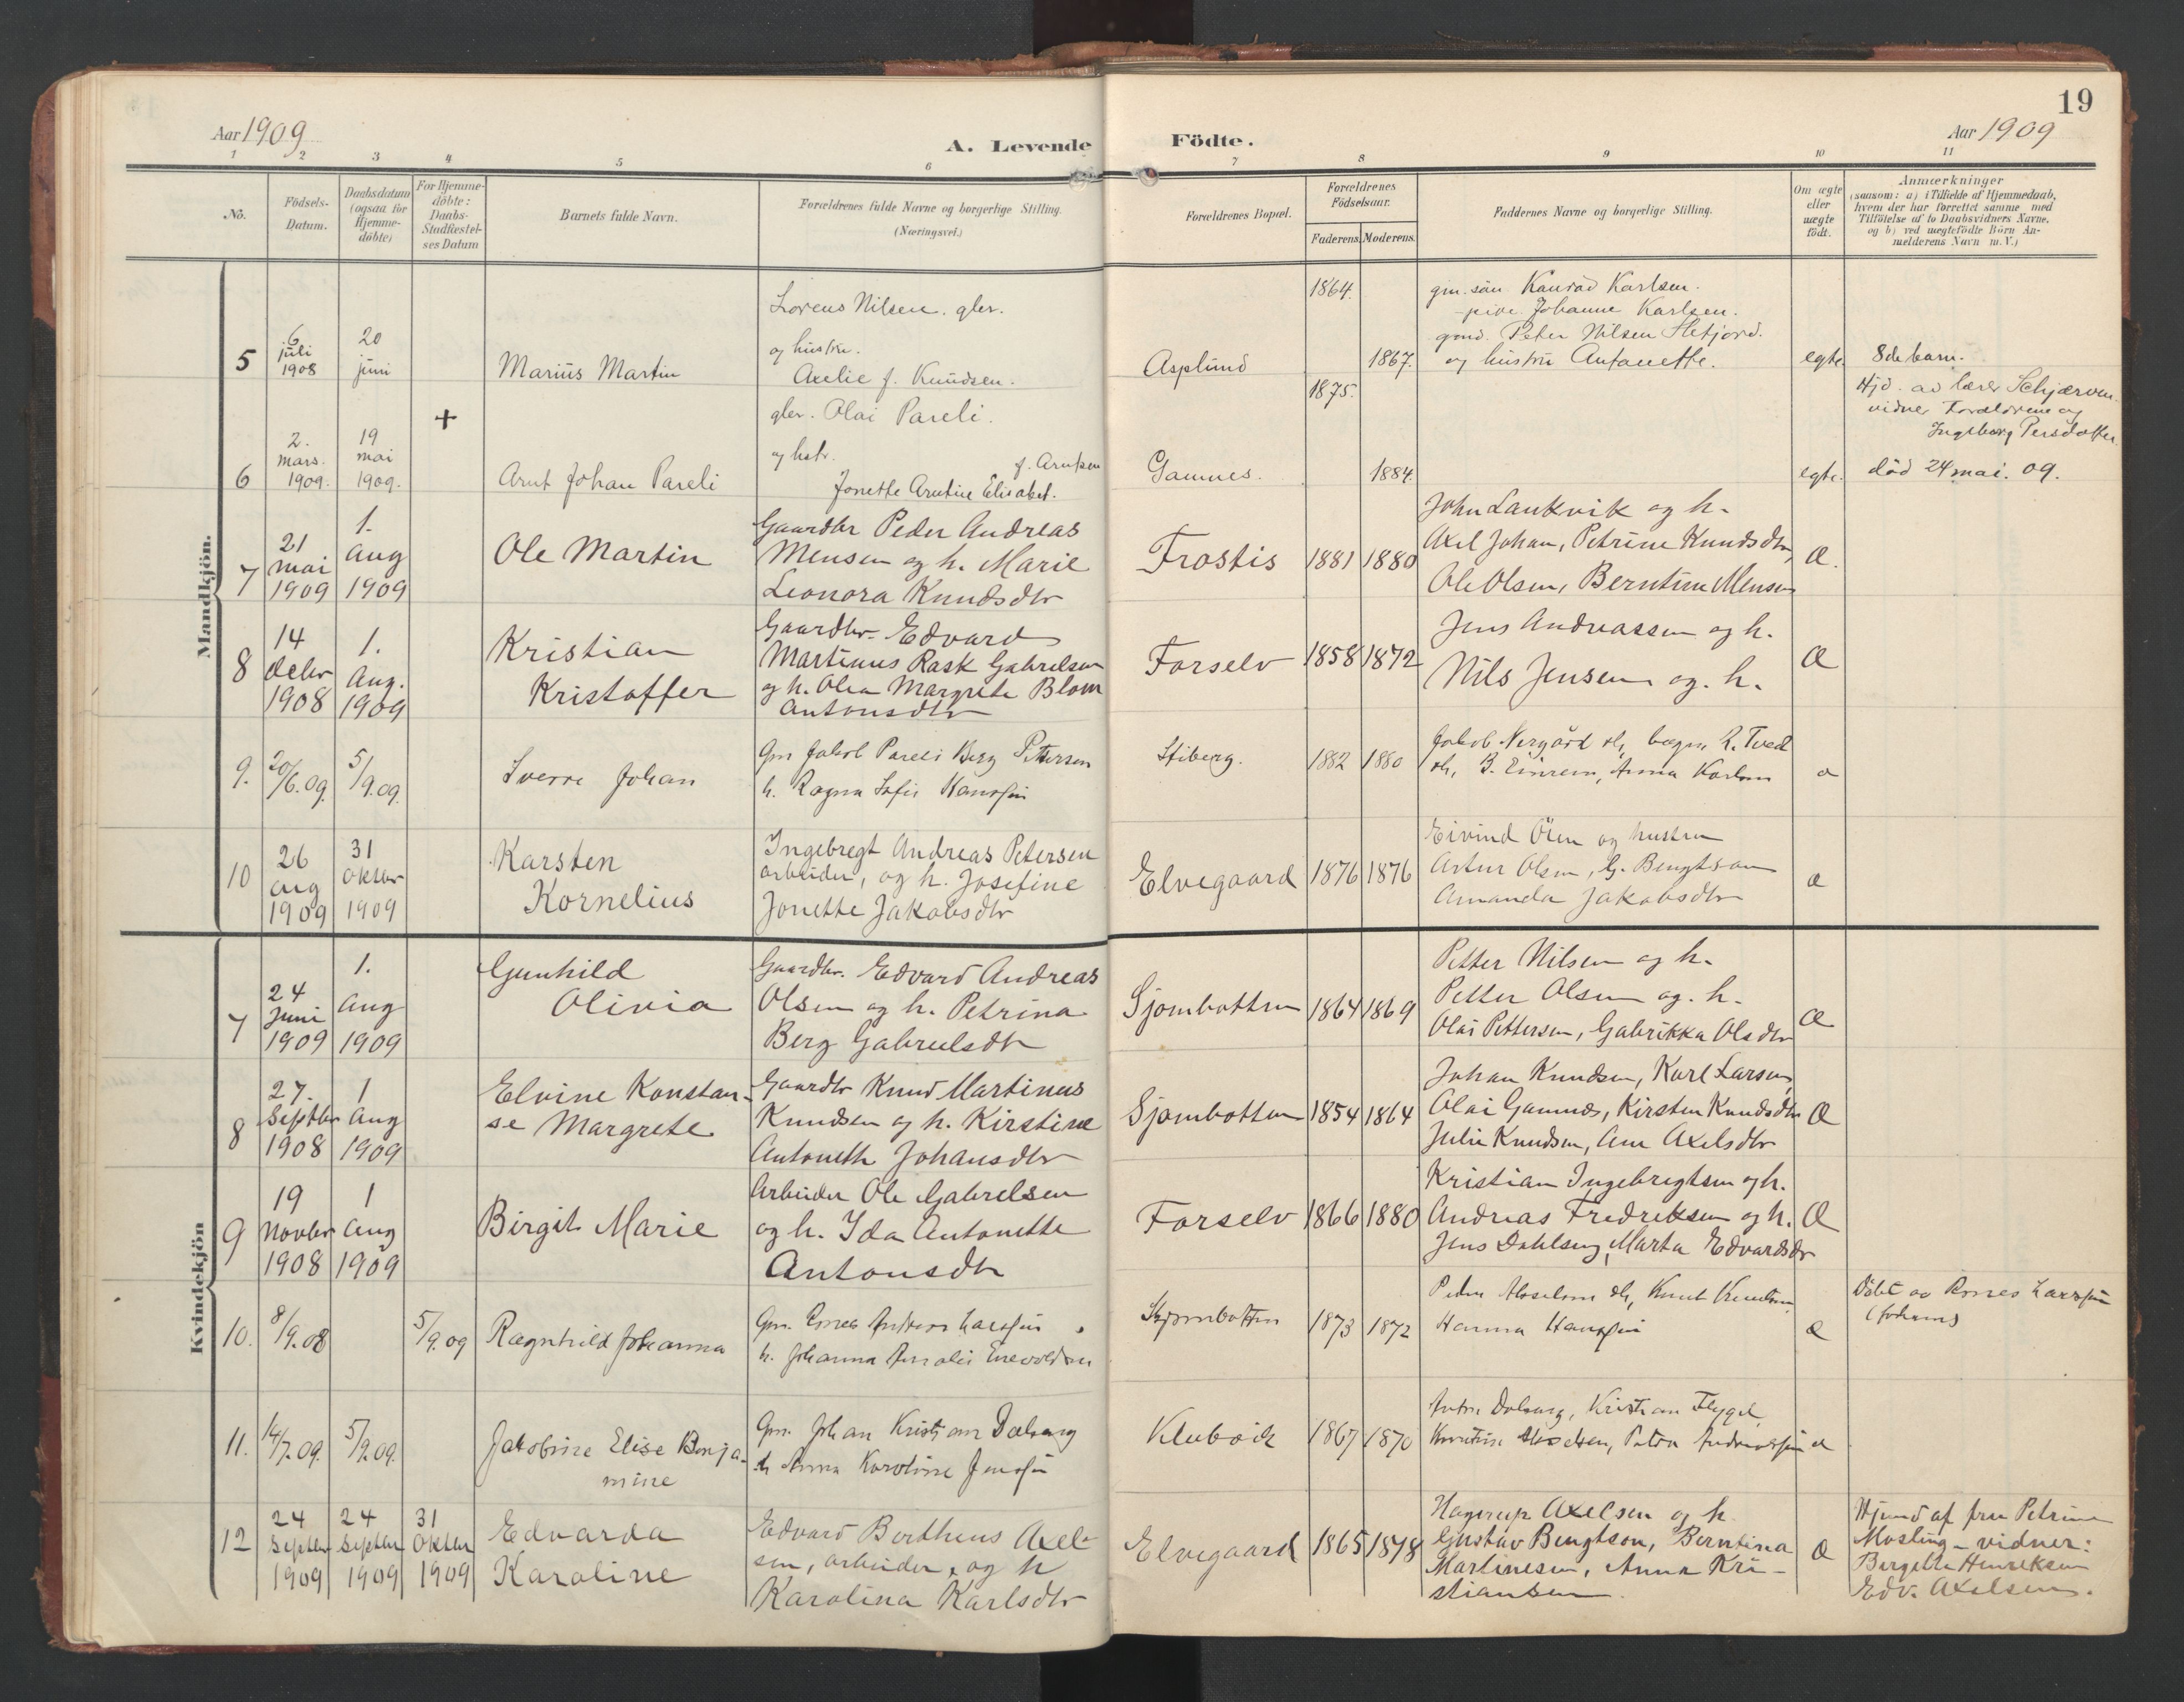 19
Aar 1909
A. Levende Födte.
Aar 1909
1 2 3 4 5 6 7 8 9 10 11
No.
Födsels-
Datum.
Daabsdatum
(ogsaa for
Hjemme-
döbte)
For Hjemme-
döbte:
Daabs-
Stadfæstel-
ses Datum
Barnets fulde Navn.
Forældrenes fulde Navne og borgerlige Stilling.
(Næringsvei.)
Forældrenes Bopæl.
Forældrenes
Födselsaar.
Faderens. Moderens.
Faddernes Navne og borgerlige Stilling.
Om ægte
eller
uægte
födt.
Anmærkninger
(saasom: a) i Tilfælde af Hjemmedaab,
hvem der har forrettet samme med
Tilföielse af to Daabsvidners Navne,
og b) ved uægtefödte Börn An-
melderens Navn m. V.)
Mandkjön.
5
6
juli
1908
20
juni
Marius Martin
Lorens Nilsen. gbr.
og hustru.
Axelie f. Knudsen.
Asplund
1864.
1867.
gm. sön Konrad Karlsen.
pike Johanne Karlsen.
gmd. Peter Nilsen
og hustru Antanette.
egte.
8de barn.
6
2.
mars.
1909.
19
mai
1909.
+
Arnt Johan Pareli
gbr. Olai Pareli.
og hstr. f. Arntsen
Jonette Arntine Elisabet.
Gamnes.
1875.
1884.
egte.
Hjd. av lærer Schjærven.
vidner Forældrene og
Ingeborg Persdatter
död 24 mai. 09.
7
21
mai
1909
1.
Aug
1909
Ole Martin
Gaardbr Peder Andreas
Mensen og h. Marie
Leonora Knudsdtr
Frostis
1881
1880
John Lankvik og h.
Axel Johan, Petrine Knudsdtr,
Ole Olsen, Berntine Mensen
Æ.
8
14
Decbr
1908
1.
Aug.
1909
Kristian
Kristoffer
Gaardbr. Edvard
Martinus Rask Gabrielsen
og h. Olea Margrete Blom
Antonsdtr
Forselv
1858
1872
Jens Andreassen og h.
Nils Jensen og. h.
Æ
9.
20/6.09.
5/9.09.
Sverre Johan
Gm Jakob Pareli Berg Pettersen
h. Ragna Sofie
Stiberg.
1882
1880
Jakob Nergård
B. Einrem, Anna Karlsen
æ
10
26
Aug
1909
31
Oktbr
1909
Karsten
Kornelius
Ingebregt Andreas Petersen
arbeider, og h. Josefine
Jonette Jakobsdtr
Elvegaard
1876
1876
Eivind Ölen og hustru
Artur Olsen, G. Bengtson
Amanda Jakobsdtr
æ
Kvindekjön
7
24
Juni
1909
1.
Aug
1909
Gunhild
Olivia
Gaardbr. Edvard Andreas
Olsen og h. Petrina
Berg Gabrielsdtr
Sjombottnen
1864
1869
Petter Nilsen og h.
Petter Olsen og. h.
Olai Pettersen, Gabrikka Olsdtr
Æ
8
27.
Septbr
1908
1
Aug
1909
Elvine Konstan-
se Margrete
Gaardbr Knud Martinus
Knudsen og h. Kirstine
Antonette Johansdtr
Sjombotten
1854
1864
Johan Knudsen, Karl Larsen,
Olai Gamnes, Kirsten Knudsdtr
Julie Knudsen, Ane Axelsdtr
Æ
9
19
Novbr
1908
1
Aug
1909
Birgit Marie
Arbeider Ole Gabrielsen
og h. Ida Antonette
Antonsdtr
Forselv
1866
1880
Kristian Ingebrigtsen og h.
Andreas Fredriksen og h.
Jens Dahlberg, Marta Edvardsdtr
Æ
10.
8/9.08
5/9.09
Ragnhild Johanna
h. Johanna Amalie Enevoldsen
1873
1872
Hanna
æ
11.
14/7.09.
5/9.09.
Jakobine Elise Benja-
mine
Gm. Johan Kristian Dalberg
h Anna Karoline
Klubvik
1867
1870
Kristian Flygel,
æ
12
24
Septbr
1909
24
Septbr
1909
31
Oktbr
1909
Edvarda
Karoline
Edvard Bertheus Axel-
sen, arbeider, og h
Karolina Karlsdtr
Elvegaard
1865
1878
Hagerup Axelsen og h.
Gustav Bengtson, Berntina
Martinesen, Anna Kri-
stiansen.
Æ
Hjmd af fru Petrine
Mosling - vidner:
Bergette Henriksen
Edv. Axelsen.